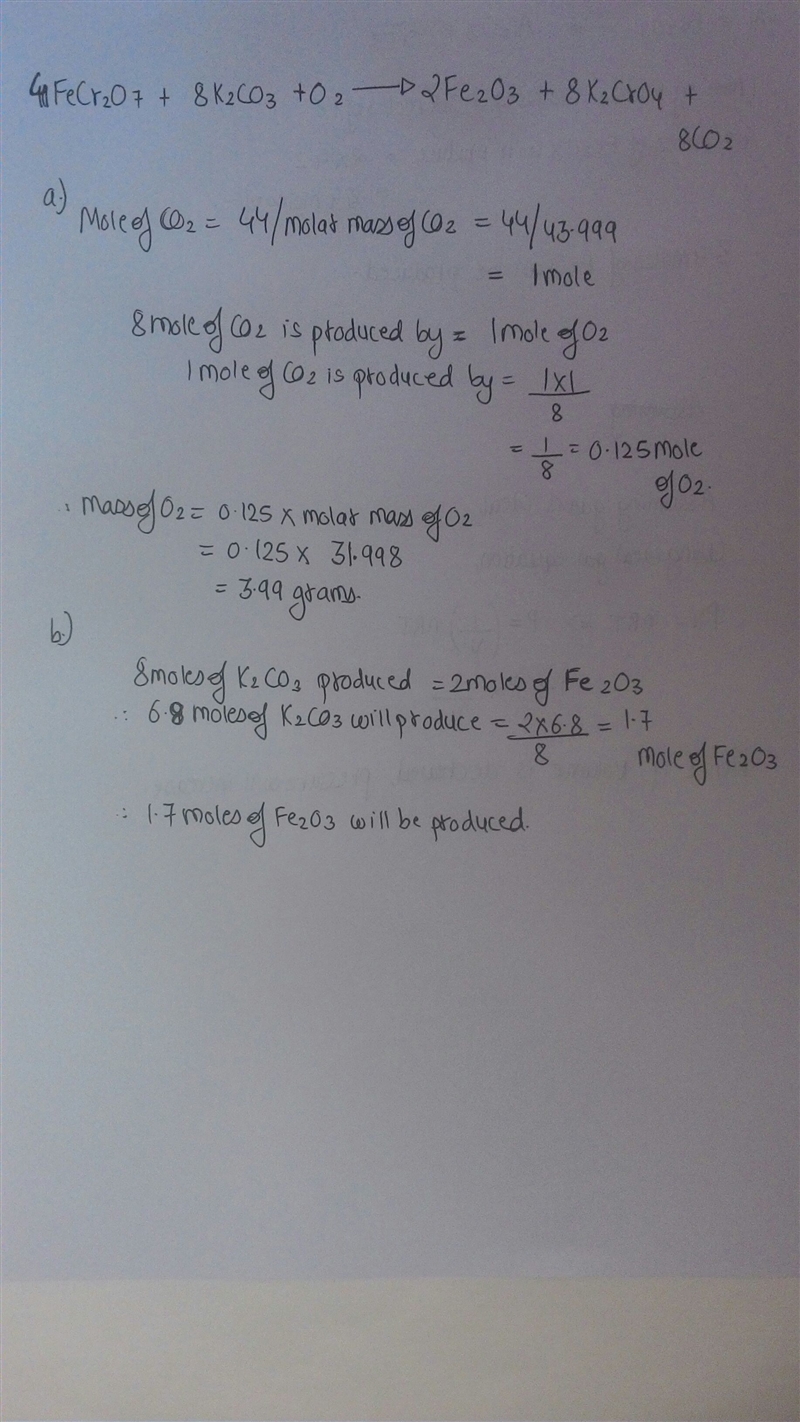 4FeCr2O7 + 8K2CO3 + O2 → 2Fe2O3 + 8K2CrO4 +
8CO2
a.)
Mole of CO2 = 44/molar mass of CO2 = 44/43.999
= 1mole
8mole of CO2 is produced by = 1mole of O2
1mole of CO2 is produced by = 1x1
8
= 1/8 = 0.125mole
of O2.
∴ Mass of O2 = 0.125 x molar mass of O2
= 0.125 x 31.998
= 3.99 grams.
b.)
8moles of K2CO3 produced = 2moles of Fe2O3
∴ 6.8 moles of K2CO3 will produce = 2x6.8 = 1.7
8
mole of Fe2O3
∴ 1.7 moles of Fe2O3 will be produced.